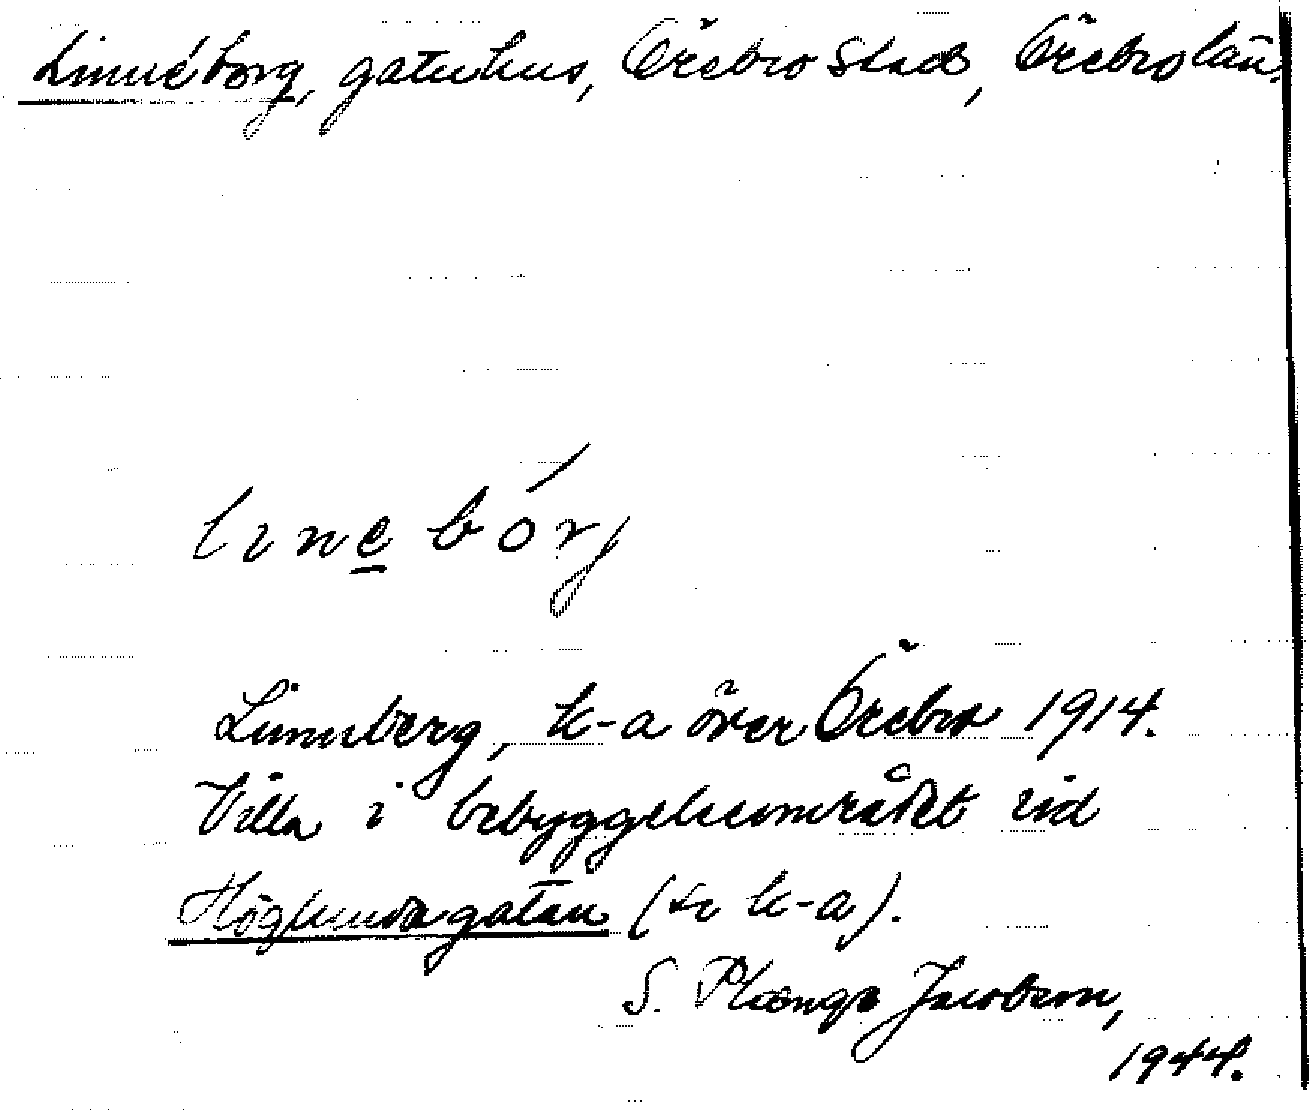 Linnéborg, gatuhus, Örebro stad, Örebro län.
linebórj
Linneberg, k-a över Örebro 1914.
Villa i bebyggelseområdet vid
Höglundagatan (se k-a).
S. Plænge Jacobson,
1944.